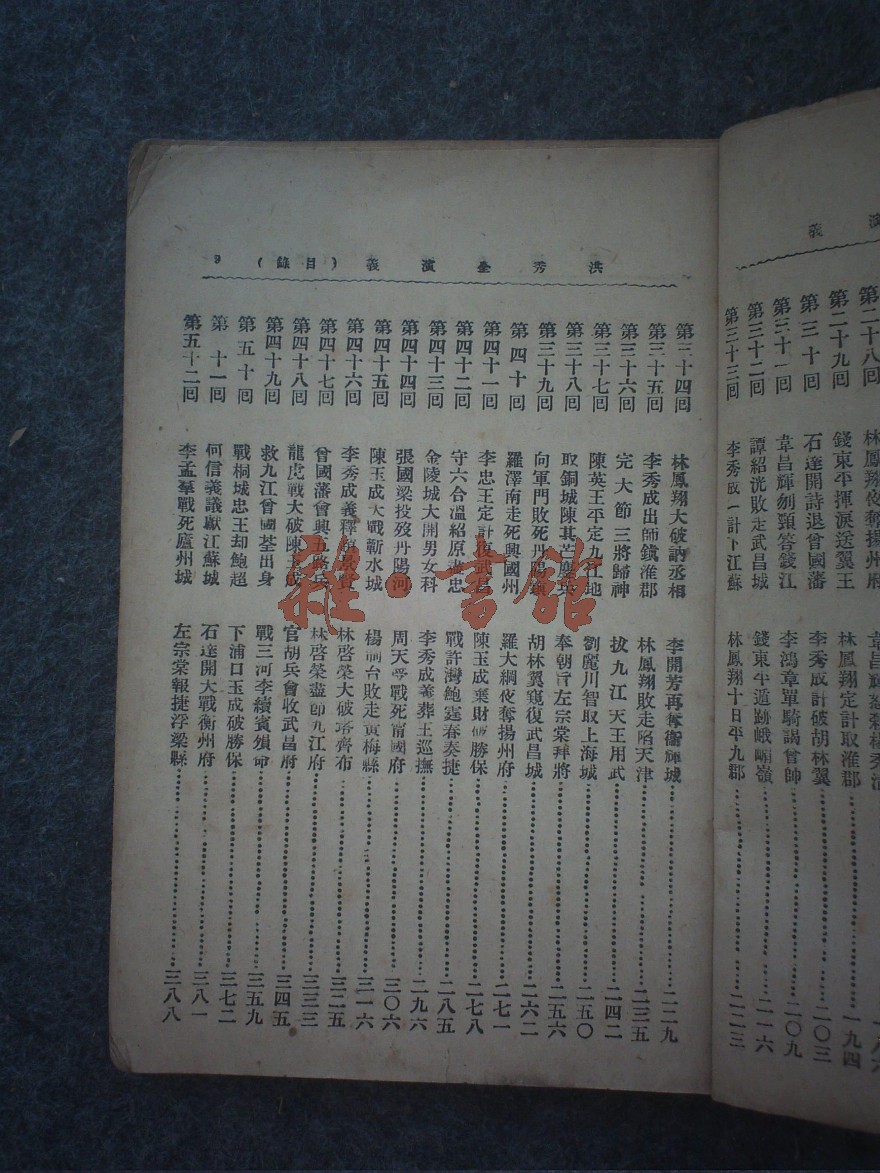 演 義
第二十八回
第二十九回 錢東平揮淚送翼王 林鳳翔定計取淮郡 一九四
第三十回 石達開詩退曾國藩 李秀成計破胡林翼 二〇三
第三十一回 韋昌輝刎頸答錢江 李鴻章單騎謁曾帥 二〇九
第三十二回 譚紹洸敗走武昌城 錢東平遁跡峨嵋嶺 二一六
第三十三回 李秀成一計下江蘇 林鳳翔十日平九郡 二二三
洪秀全演義(目錄) 9
第三十四回 林鳳翔大破訥丞相 李開芳再奪衞輝城 二二九
第三十五回 李秀成出師鎮淮郡 林鳳翔敗走陷天津 二三五
第三十六回 完大節三將歸神 拔九江天王用武 二四二
第三十七回 陳英王平定九江地 劉麗川智取上海城 二五〇
第三十八回 取銅城陳其芒 奉朝旨左宗棠拜將 二五六
第三十九回 向軍門敗死丹陽鎮 胡林翼窺復武昌城 二六二
第四十回 羅澤南走死興國州 羅大綱夜奪揚州府 二七一
第四十一回 李忠王定計復武昌 陳玉成棄財破勝保 二七八
第四十二回 守六合溫紹原盡忠 戰許灣鮑春霆奏捷 二八五
第四十三回 金陵城大開男女科 李秀成義葬王巡撫 二九六
第四十四回 張國梁投歿丹陽河 周天受戰死甯國府 三〇六
第四十五回 陳玉成大戰蘄水城 楊輔台敗走黃梅縣 三一六
第四十六回 李秀成義釋趙景賢 林啓榮大破塔齊布 三二五
第四十七回 曾國藩會興五路兵 林啓榮盡節九江府 三三三
第四十八回 龍虎戰大破陳玉成 官胡兵會收武昌府 三四五
第四十九回 救九江曾國荃出身 戰三河李續賓殞命 三五九
第五十回 戰桐城忠王却鮑超 下浦口玉成破勝保 三七二
第 十一回 何信義議獻江蘇城 石達開大戰衡州府 三八一
第五十二回 李孟羣戰死廬州城 左宗棠報捷浮梁縣 三八八
雜·書館